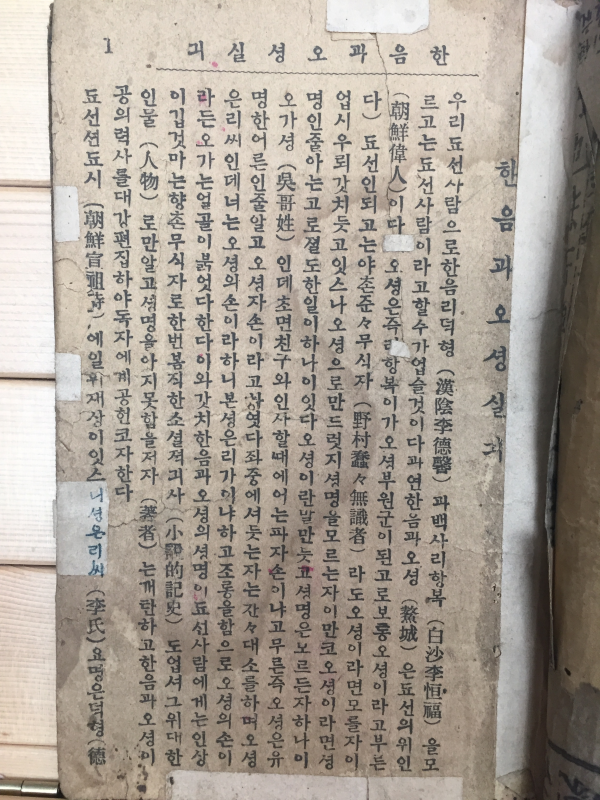 한음과오셩실긔 1
한음과오셩실긔
우리됴선사람으로한음리덕형 (漢陰李德馨) 과백사리항복 (白沙李恒福) 을모
르고는됴선사람이라고할수가업슬것이다과연한음과오셩 (鰲城) 은됴선의위인
(朝鮮偉人) 이다 오셩은즉리항복이가오셩부원군이된고로보통오셩이라고부른
다) 됴선인되고는야촌준々무식자 (野村蠢々無識者) 라도오셩이라면모를자이
업시우뢰갓치듯고잇스나오셩으로만드럿지셩명을모르는자이만코오셩이라면셩
명인줄아는고로졀도한일이하나이잇다오셩이란말만듯고셩명은모르든자하나이
오가셩 (吳哥姓) 인데초면친구와인사할때에어는파자손이냐고무른즉오셩은유
명한어른인줄알고오셩자손이라고하엿다좌중에셔듯는자는잔々대소를하며오셩
은리씨인데너는오셩의손이라하니본셩은리가이냐하고조롱을함으로오셩의손이
라든오가는얼골이붉엇다한다이와갓치한음과오셩의셩명이됴선사람에게는인상
이깁것마는향촌무식자로한번봄직한소셜젹긔사 (小說的記史) 도업셔그위대한
인물 (人物) 로만알고셩명을아지못함을저자 (著者) 는개탄하고한음과오셩이
공의력사를대강편집하야독자에게공헌코자한다
됴선션됴시 (朝鮮宣祖時) 에일위재상이잇스니셩은리씨 (李氏) 요명은덕형 (德